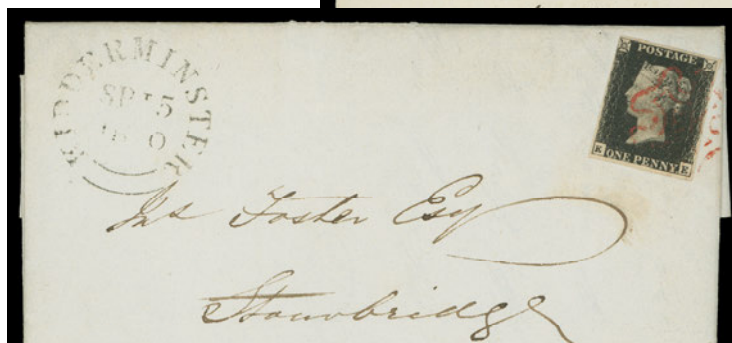 KIDDERMINSTER
SP 15
POSTAGE
K ONE PENNY E
Jas Foster Esq
Stourbridge